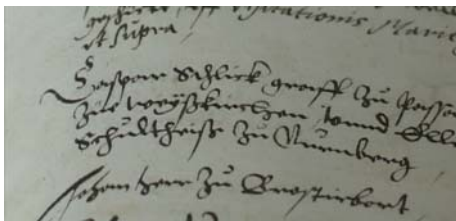 Visitationis Mariæ
ut supra
Caspar Schlick graiff zu Passa
zue weyßkirchen vnnd Elln
Schultheiß zu Nurnberg
Johan herr zu